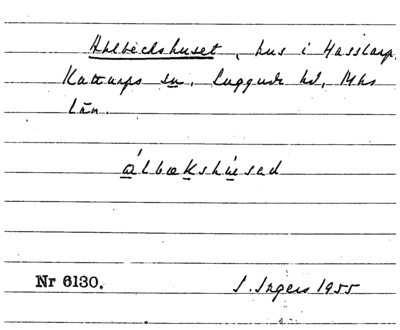 Ahlbeckshuset, hus i Hasslarp,
Kattarps sn, Luggude hd, Mhs
län.
álbœkshùsəd
Nr 6130. S. Ingers 1955